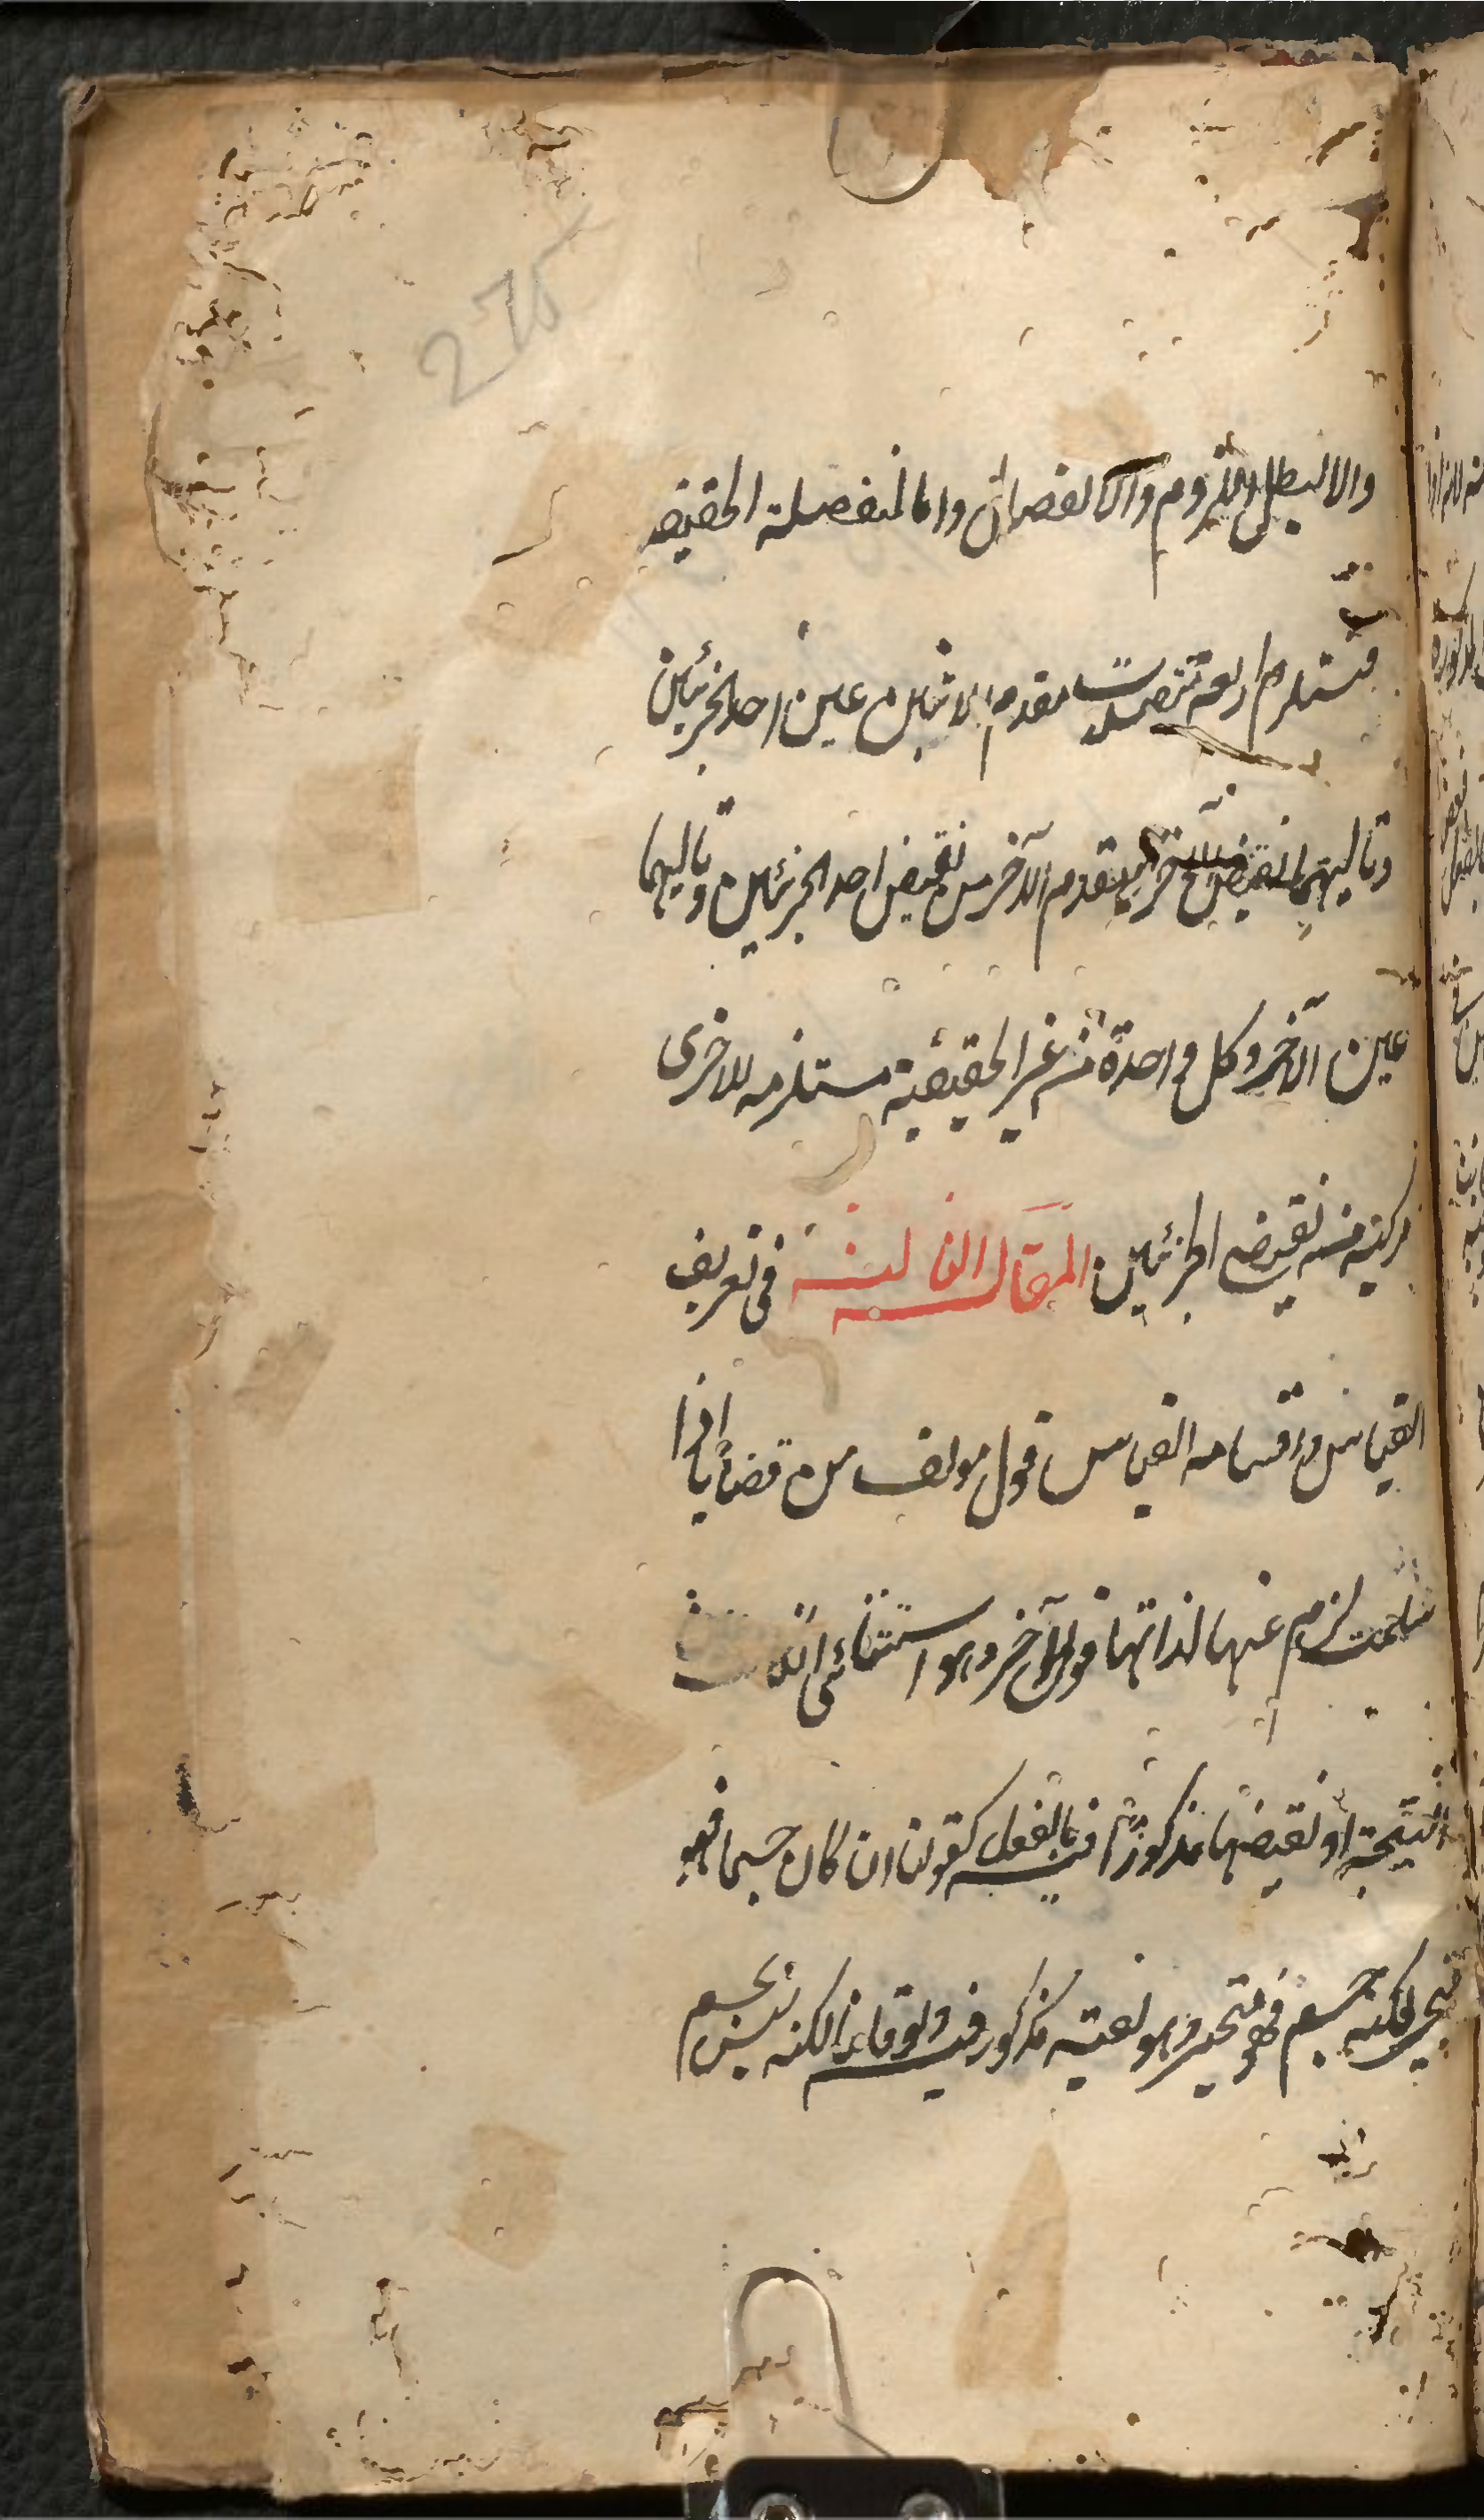 والا لبطل اللزوم والانفصال واما المنفصلة الحقيقه
فتستلزم اربع متصلات مقدم الاثنين عين احد الجزئين
وتاليهما نقيض الآخر ومقدم الآخرين نقيض احد الجزئين وتاليهما
عين الآخر وكل واحدة من غير الحقيقية مستلزمه للاخرى
مركبة من نقيضي الجزئين المقالة الثالثة في تعريف
القياس واقسامه القياس قول مولف من قضايا اذا
سلمت لزم عنها لذاتها قول آخر وهو استثنائى ان كانت
النتيجة او نقيضها مذكورا فيه بالفعل كقولنا ان كان جسما فهو
متحيز لكنه جسم فهو متحيز وهو بعينه مذكور فيه ولو قلنا لكنه ليس بجسم
275